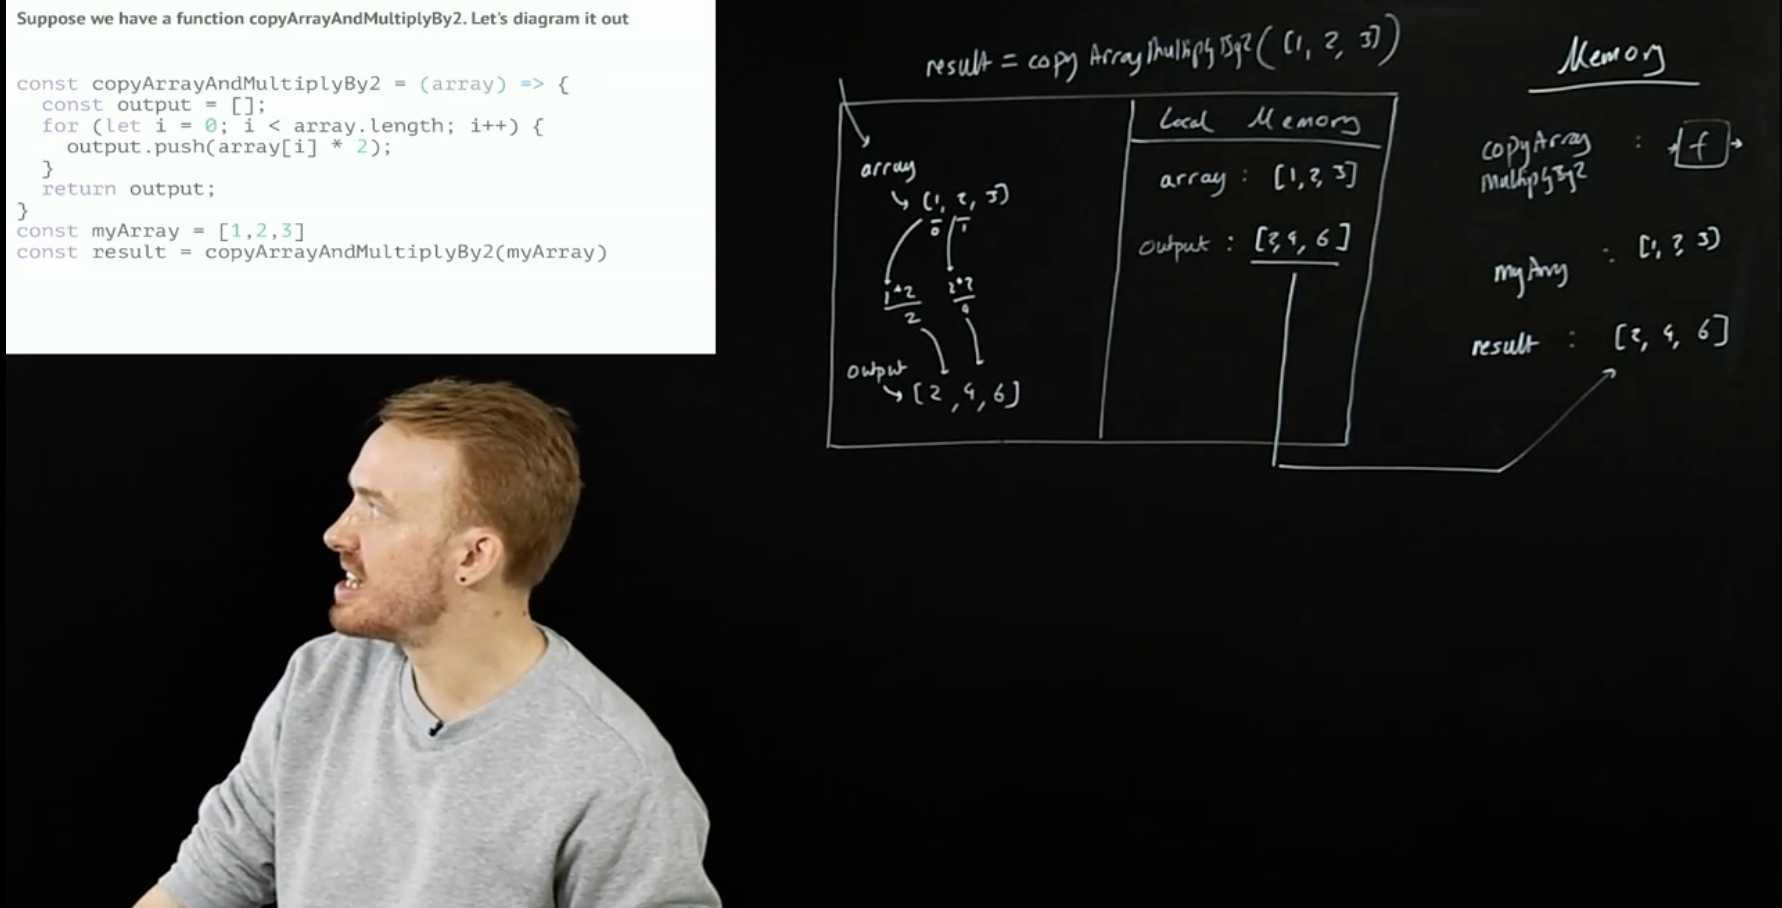 Suppose we have a function copyArrayAndMultiplyBy2. Let's diagram it out
const copyArrayAndMultiplyBy2 = (array) => {
const output = [];
for (let i = 0; i < array.length; i++) {
output.push(array[i] * 2);
}
return output;
}
const myArray = [1,2,3]
const result = copyArrayAndMultiplyBy2(myArray)
result = copy ArrayMultiplyBy2 ([1, 2, 3])
array
[1, 2, 3]
0 1
1*2 2*2
2 4
output
[2, 4, 6]
Local Memory
array : [1,2,3]
output : [2,4,6]
Memory
copyArray : f
MultiplyBy2
myArray : [1,2,3]
result : [2, 4, 6]